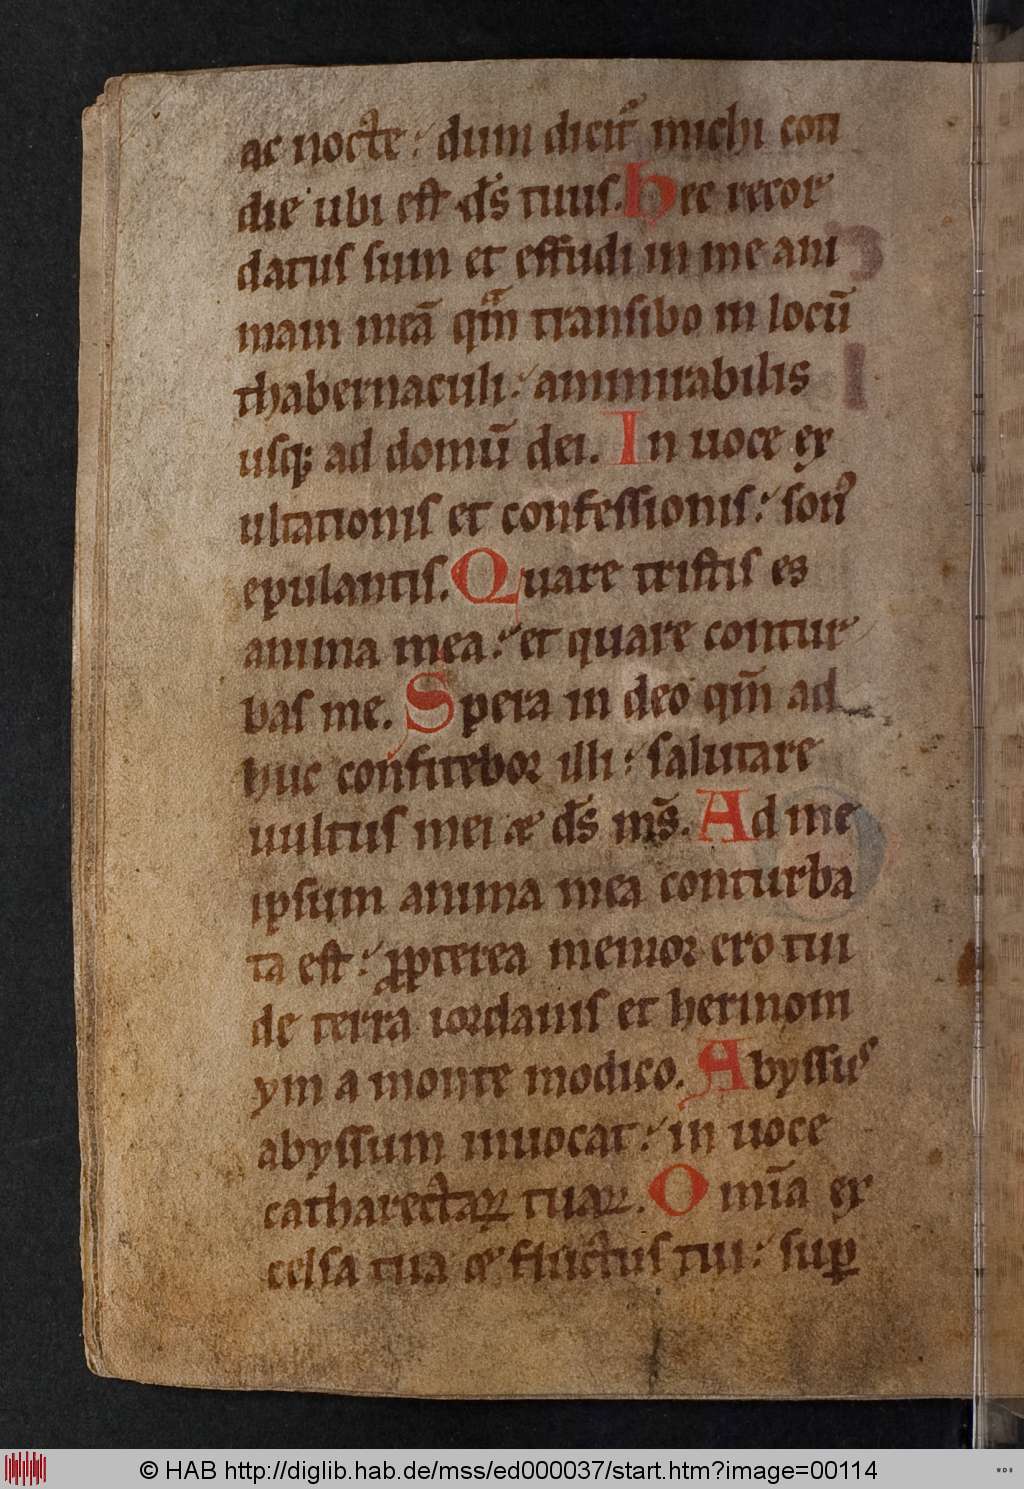 ac nocte : dum dicit᷑ michi coti
die ubi est ds̄ tuus. Hec recor
datus sum et effudi in me ani
mam meā qm̄ transibo in locū
thabernaculi : ammirabilis
usq; ad domū dei. In uoce ex
ultationis et confessionis : son᷑
epulantis. Quare tristis es
anima mea : et quare contur
bas me. Spera in deo qm̄ ad
huc confitebor illi : salutare
uultus mei & ds̄ ms̄. Ad me
ipsum anima mea conturba
ta est : ꝓpterea memor ero tui
de terra iordanis et hermoni
ym a monte modico. Abyssus
abyssum inuocat : in uoce
catharectaꝝ tuaꝝ. Omīa ex
celsa tua & fluctus tui : suꝑ
© HAB http://diglib.hab.de/mss/ed000037/start.htm?image=00114